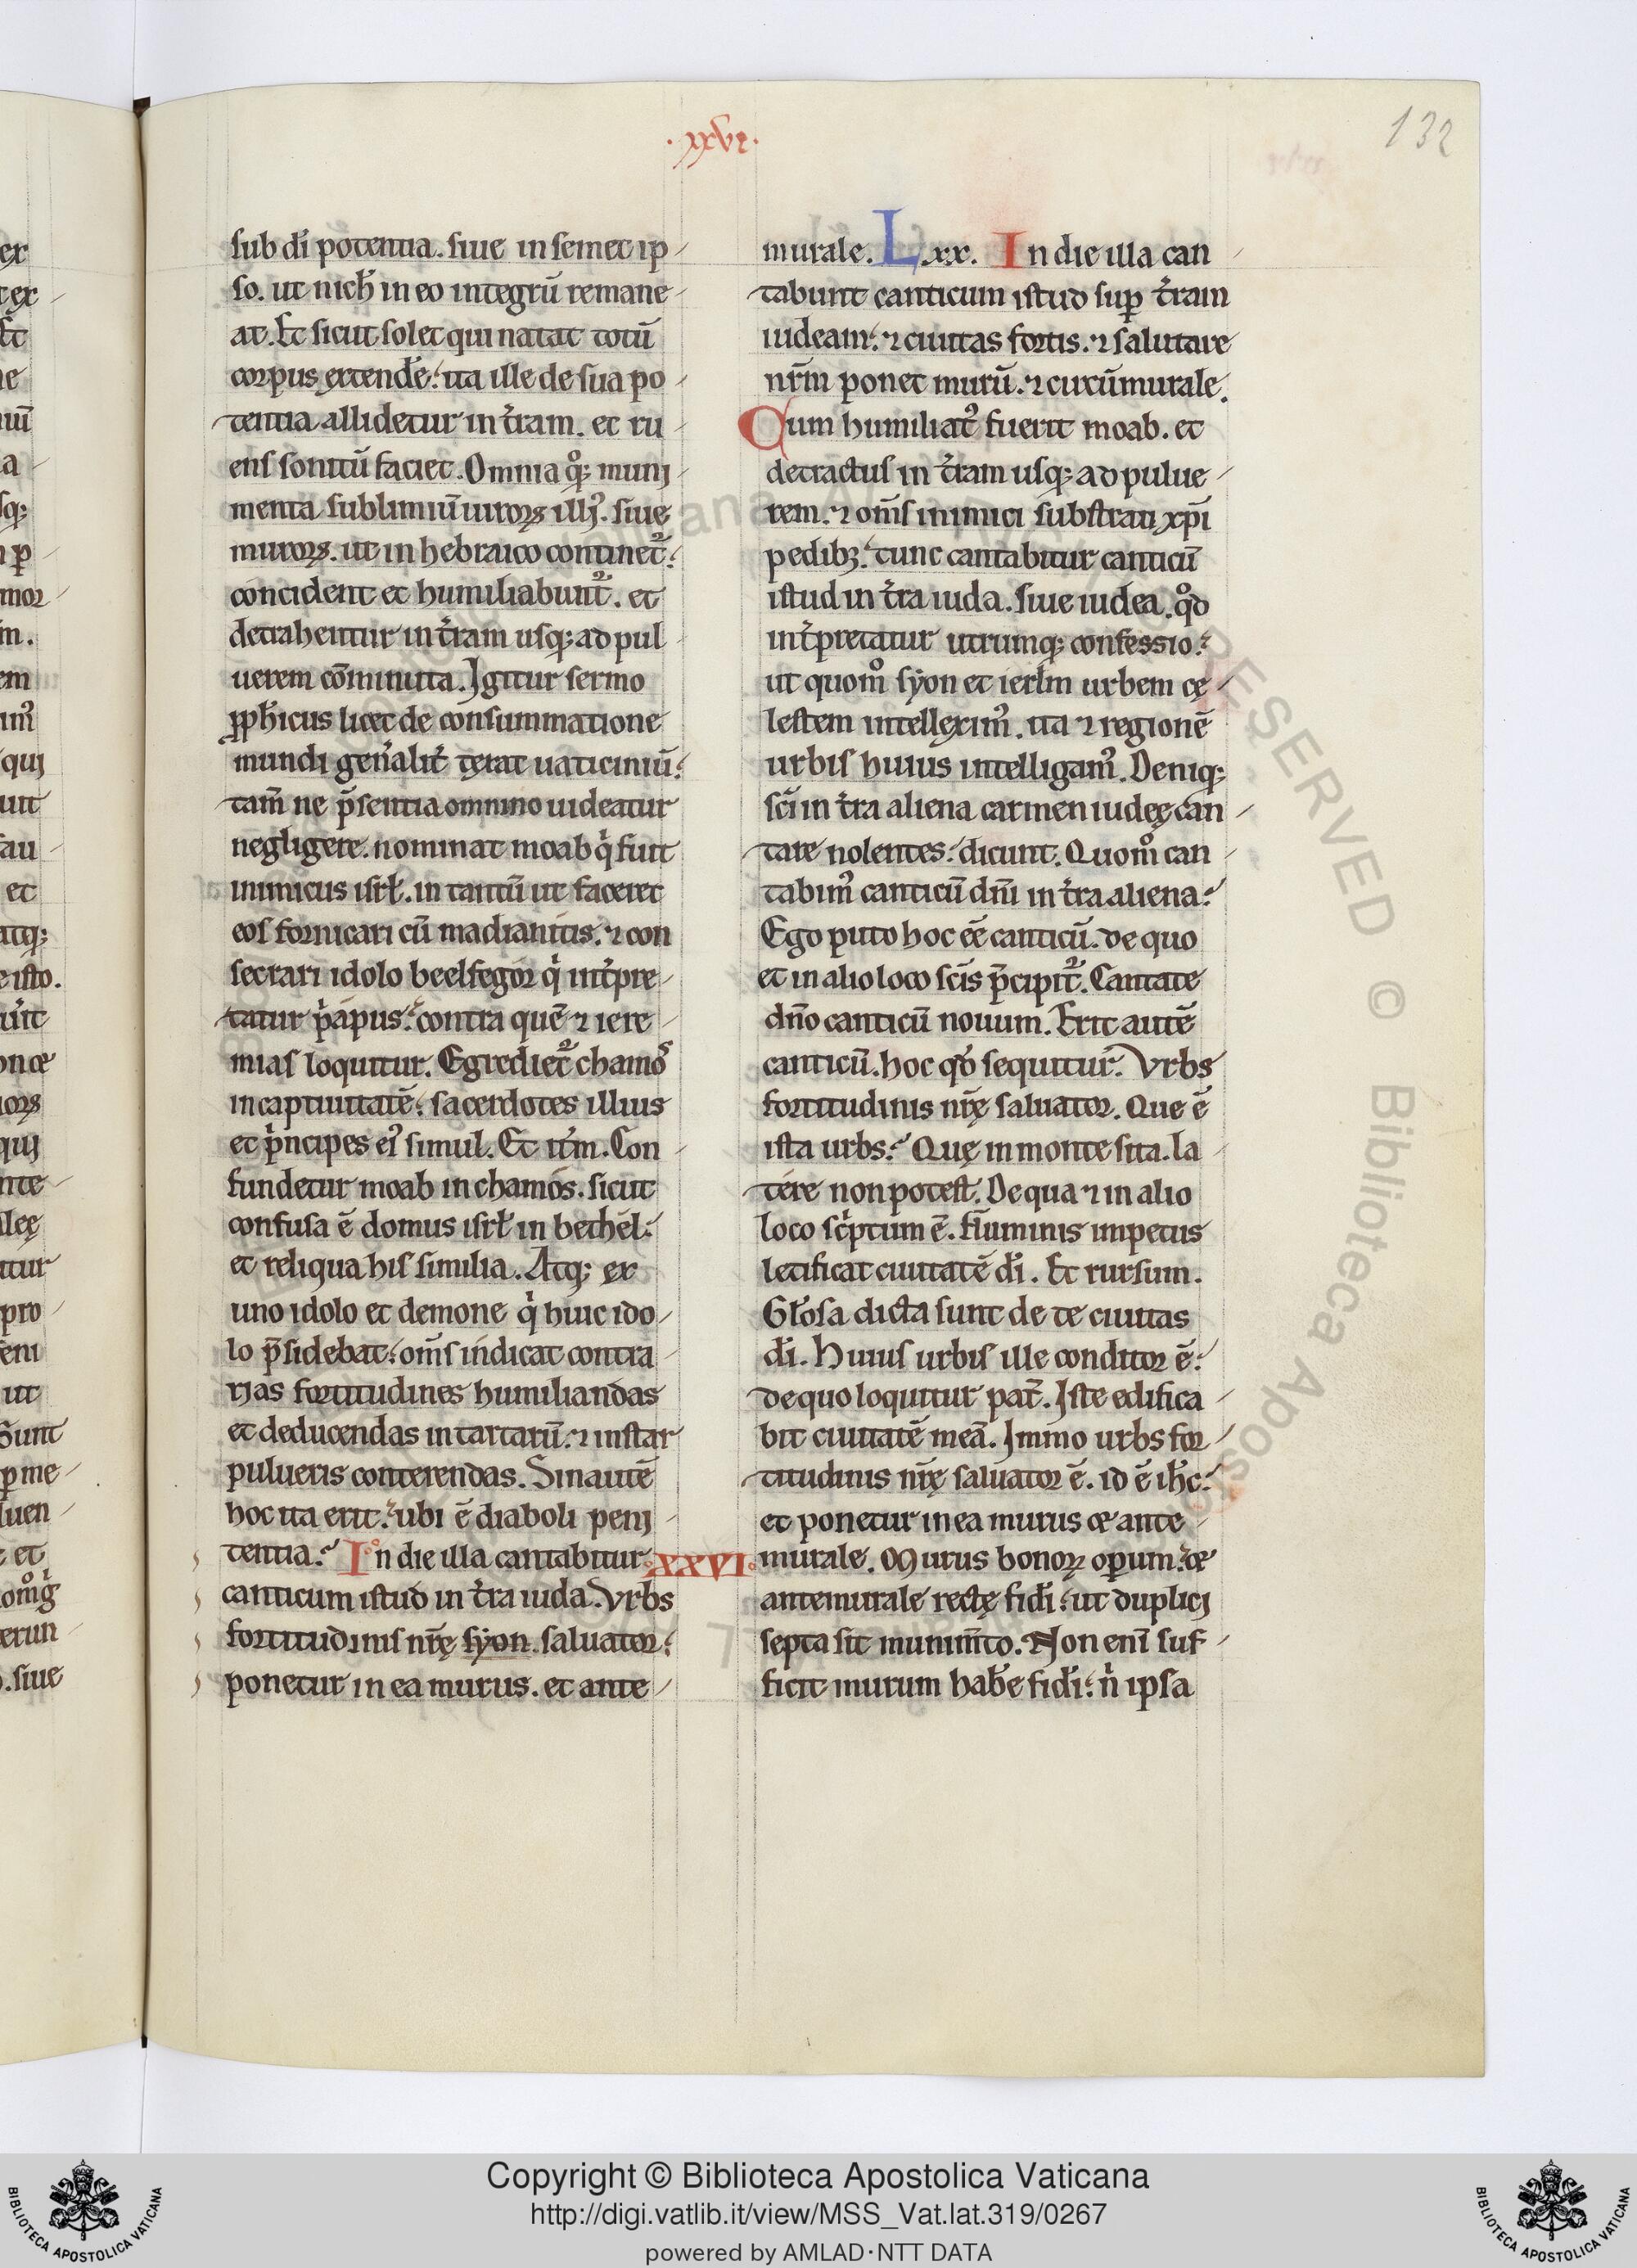 .xxvi.
132
sub dī potentia. siue in semet ip
so. ut nich̄ in eo integrū remane
at. Et sicut solet qui natat totū
corpus extendē: ita ille de sua po
tentia allidetur in t̄ram. et ru
ens sonitū faciet. Omnia q̊ꝫ munj
menta sublimiū uiroꝝ illiꝰ. siue
muroꝝ. ut in hebraico continet᷑:
concident et humiliabunt᷑. et
detrahentur in t̄ram usqꝫ ad pul
uerem cōminuta. Igitur sermo
ꝓph̄icus licet de consummatione
mundi gen̄alit̄ texat uaticiniū:
tam̄ ne p̄sentia omnino uideatur
negligere. nominat moab qͥ fuit
inimicus isrł. in tantū ut faceret
eos fornicari cū madianitis. ⁊ con
secrari idolo beelfegor qͥ int̄pre
tatur pͥapus: contra quē ⁊ iere
mias loquitur. Egrediet᷑ chamos
in captiuitatē: sacerdotes illius
et pͥncipes eiꝰ simul. Et itm̄. Con
fundetur moab in chamos. sicut
confusa ē domus isrł in bethel:
et reliqua his similia. Atqꝫ ex
uno idolo et demone qͥ huic ido
lo p̄sidebat: om̄s indicat contra
rias fortitudines humiliandas
et deducendas in tartarū. ⁊ instar
pulueris conterendas. Sin autē
hoc ita erit: ubi ē diaboli penj
tentia? In die illa cantabitur XXVI
canticum istud in t̄ra iuda. Vrbs
fortitudinis nr̄ę syon saluator:
ponetur in ea murus. et ante
murale. Lxx. In die illa can
tabunt canticum istud suꝑ t̄ram
iudeam: ⁊ ciuitas fortis. ⁊ salutare
nr̄m ponet murū. ⁊ circūmurale.
Cum humiliatꝰ fuerit moab. et
detractus in t̄ram usqꝫ ad pulue
rem. ⁊ om̄s inimici substrati xp̄i
pedibꝫ: tunc cantabitur canticū
istud in t̄ra iuda. siue iudea. qͦd
int̄pretatur utrumqꝫ confessio:
ut quom̊ syon et ierłm urbem cę
lestem intelleximꝰ. ita ⁊ regionē
urbis huius intelligamꝰ. Deniqꝫ
sc̄i in t̄ra aliena carmen iudeę can
tare nolentes: dicunt. Quom̊ can
tabimꝰ canticū dn̄i in t̄ra aliena?
Ego puto hoc eē canticū. de quo
et in alio loco sc̄is p̄cipit᷑. Cantate
dn̄o canticū nouum. Erit autē
canticū. hoc qd̄ sequitur. Vrbs
fortitudinis nr̄ę saluator. Que ē
ista urbs? Quę in monte sita. la
tere non potest. De qua ⁊ in alio
loco scͥptum ē. Fluminis impetus
letificat ciuitatē dī. Et rursum.
Gło̅sa dicta sunt de te ciuitas
dī. Huius urbis ille conditor ē:
de quo loquitur pat̄. Iste edifica
bit ciuitatē meā. Immo urbs for
titudinis nr̄ę saluator ē. id ē ih̄c:
et ponetur in ea murus & ante
murale. Murus bonoꝝ oꝑum: &
antemurale rectę fidī: ut duplicj
septa sit munim̄to. Non enī suf
ficit murum habē fidī: nͥ ipsa
ex
Et
et
uit
qui
siue
Copyright © Biblioteca Apostolica Vaticana
http://digi.vatlib.it/view/MSS_Vat.lat.319/0267
powered by AMLAD·NTT DATA
BIBLIOTECA APOSTOLICA VATICANA
BIBLIOTECA APOSTOLICA VATICANA